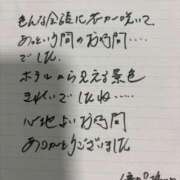 色んな会話に花が咲いて、
あっという間のお時間‥‥
でした。
ホテルから見える景色
きれいでしたね‥‥
心地よいお時間
ありがとうございました